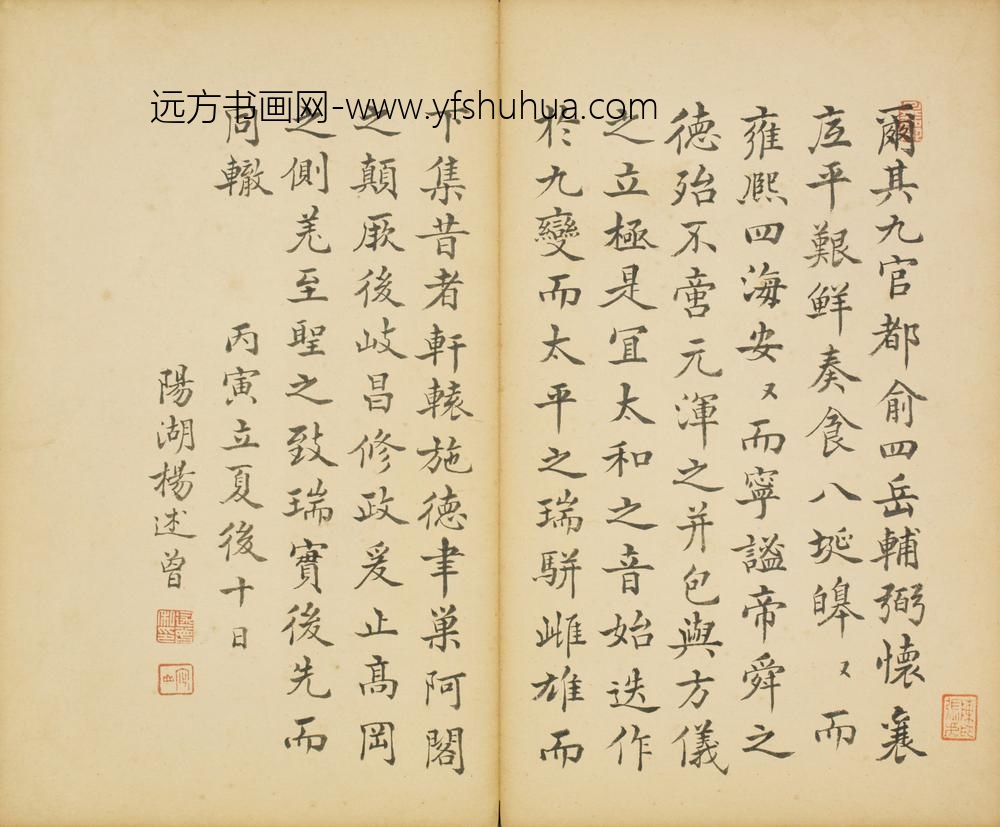 远方书画网-www.yfshuhua.com
爾其九官都俞四岳輔弼懷襄
底平艱鮮奏食八埏皞〻而
雍熙四海安〻而寧謐帝舜之
德殆不啻元渾之并包與方儀
之立極是宜太和之音始迭作
於九變而太平之瑞駢雌雄而
下集昔者軒轅施德聿巢阿閣
之顛厥後岐昌修政爰止高岡
之側羌至聖之致瑞實後先而
同轍
丙寅立夏後十日
陽湖楊述曾